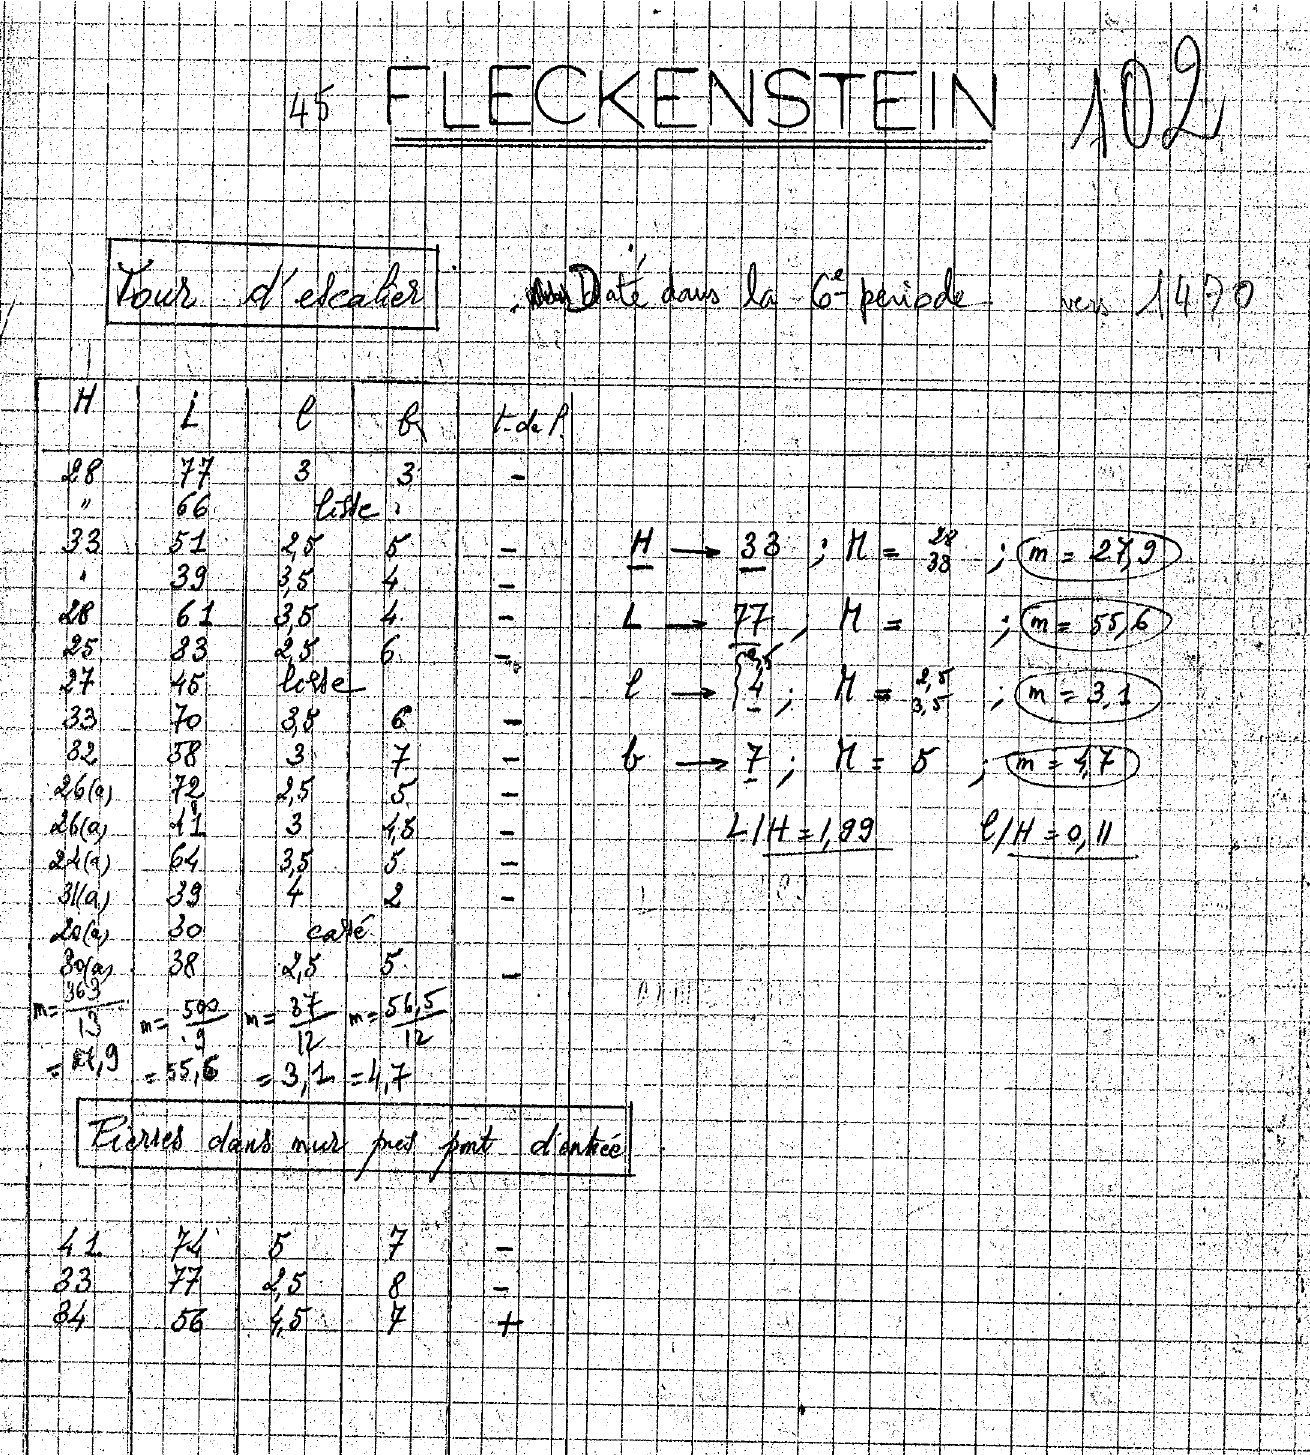 45 FLECKENSTEIN 102
Tour d'escalier Daté dans la 6e periode vers 1470
H L l b t. de P.
28 77 3 3 -
" 66 lisse
33 51 2,5 5 -
" 39 3,5 4 -
28 61 3,5 4 -
25 83 2,5 6 -
27 45 lisse
33 70 3,5 6 -
32 58 3 7 -
26(a) 72 2,5 5 -
26(a) 41 3 4,8 -
24(a) 64 3,5 5 -
31(a) 39 4 2 -
20(a) 30 carré
30(a) 38 2,5 5 -
m= 363/13 m= 500/9 m= 37/12 m= 56,5/12
= 27,9 = 55,6 = 3,1 = 4,7
H → 33 ; M = 28 38 ; m = 27,9
L → 77 ; M = ; m = 55,6
l → { 2,5 4 ; M = 2,5 3,5 ; m = 3,1
b → 7 ; M = 5 ; m = 4,7
L/H = 1,99 l/H = 0,11
Pierres dans mur pres pont d'entrée
41 74 5 7 -
33 77 2,5 8 -
34 56 4,5 7 +